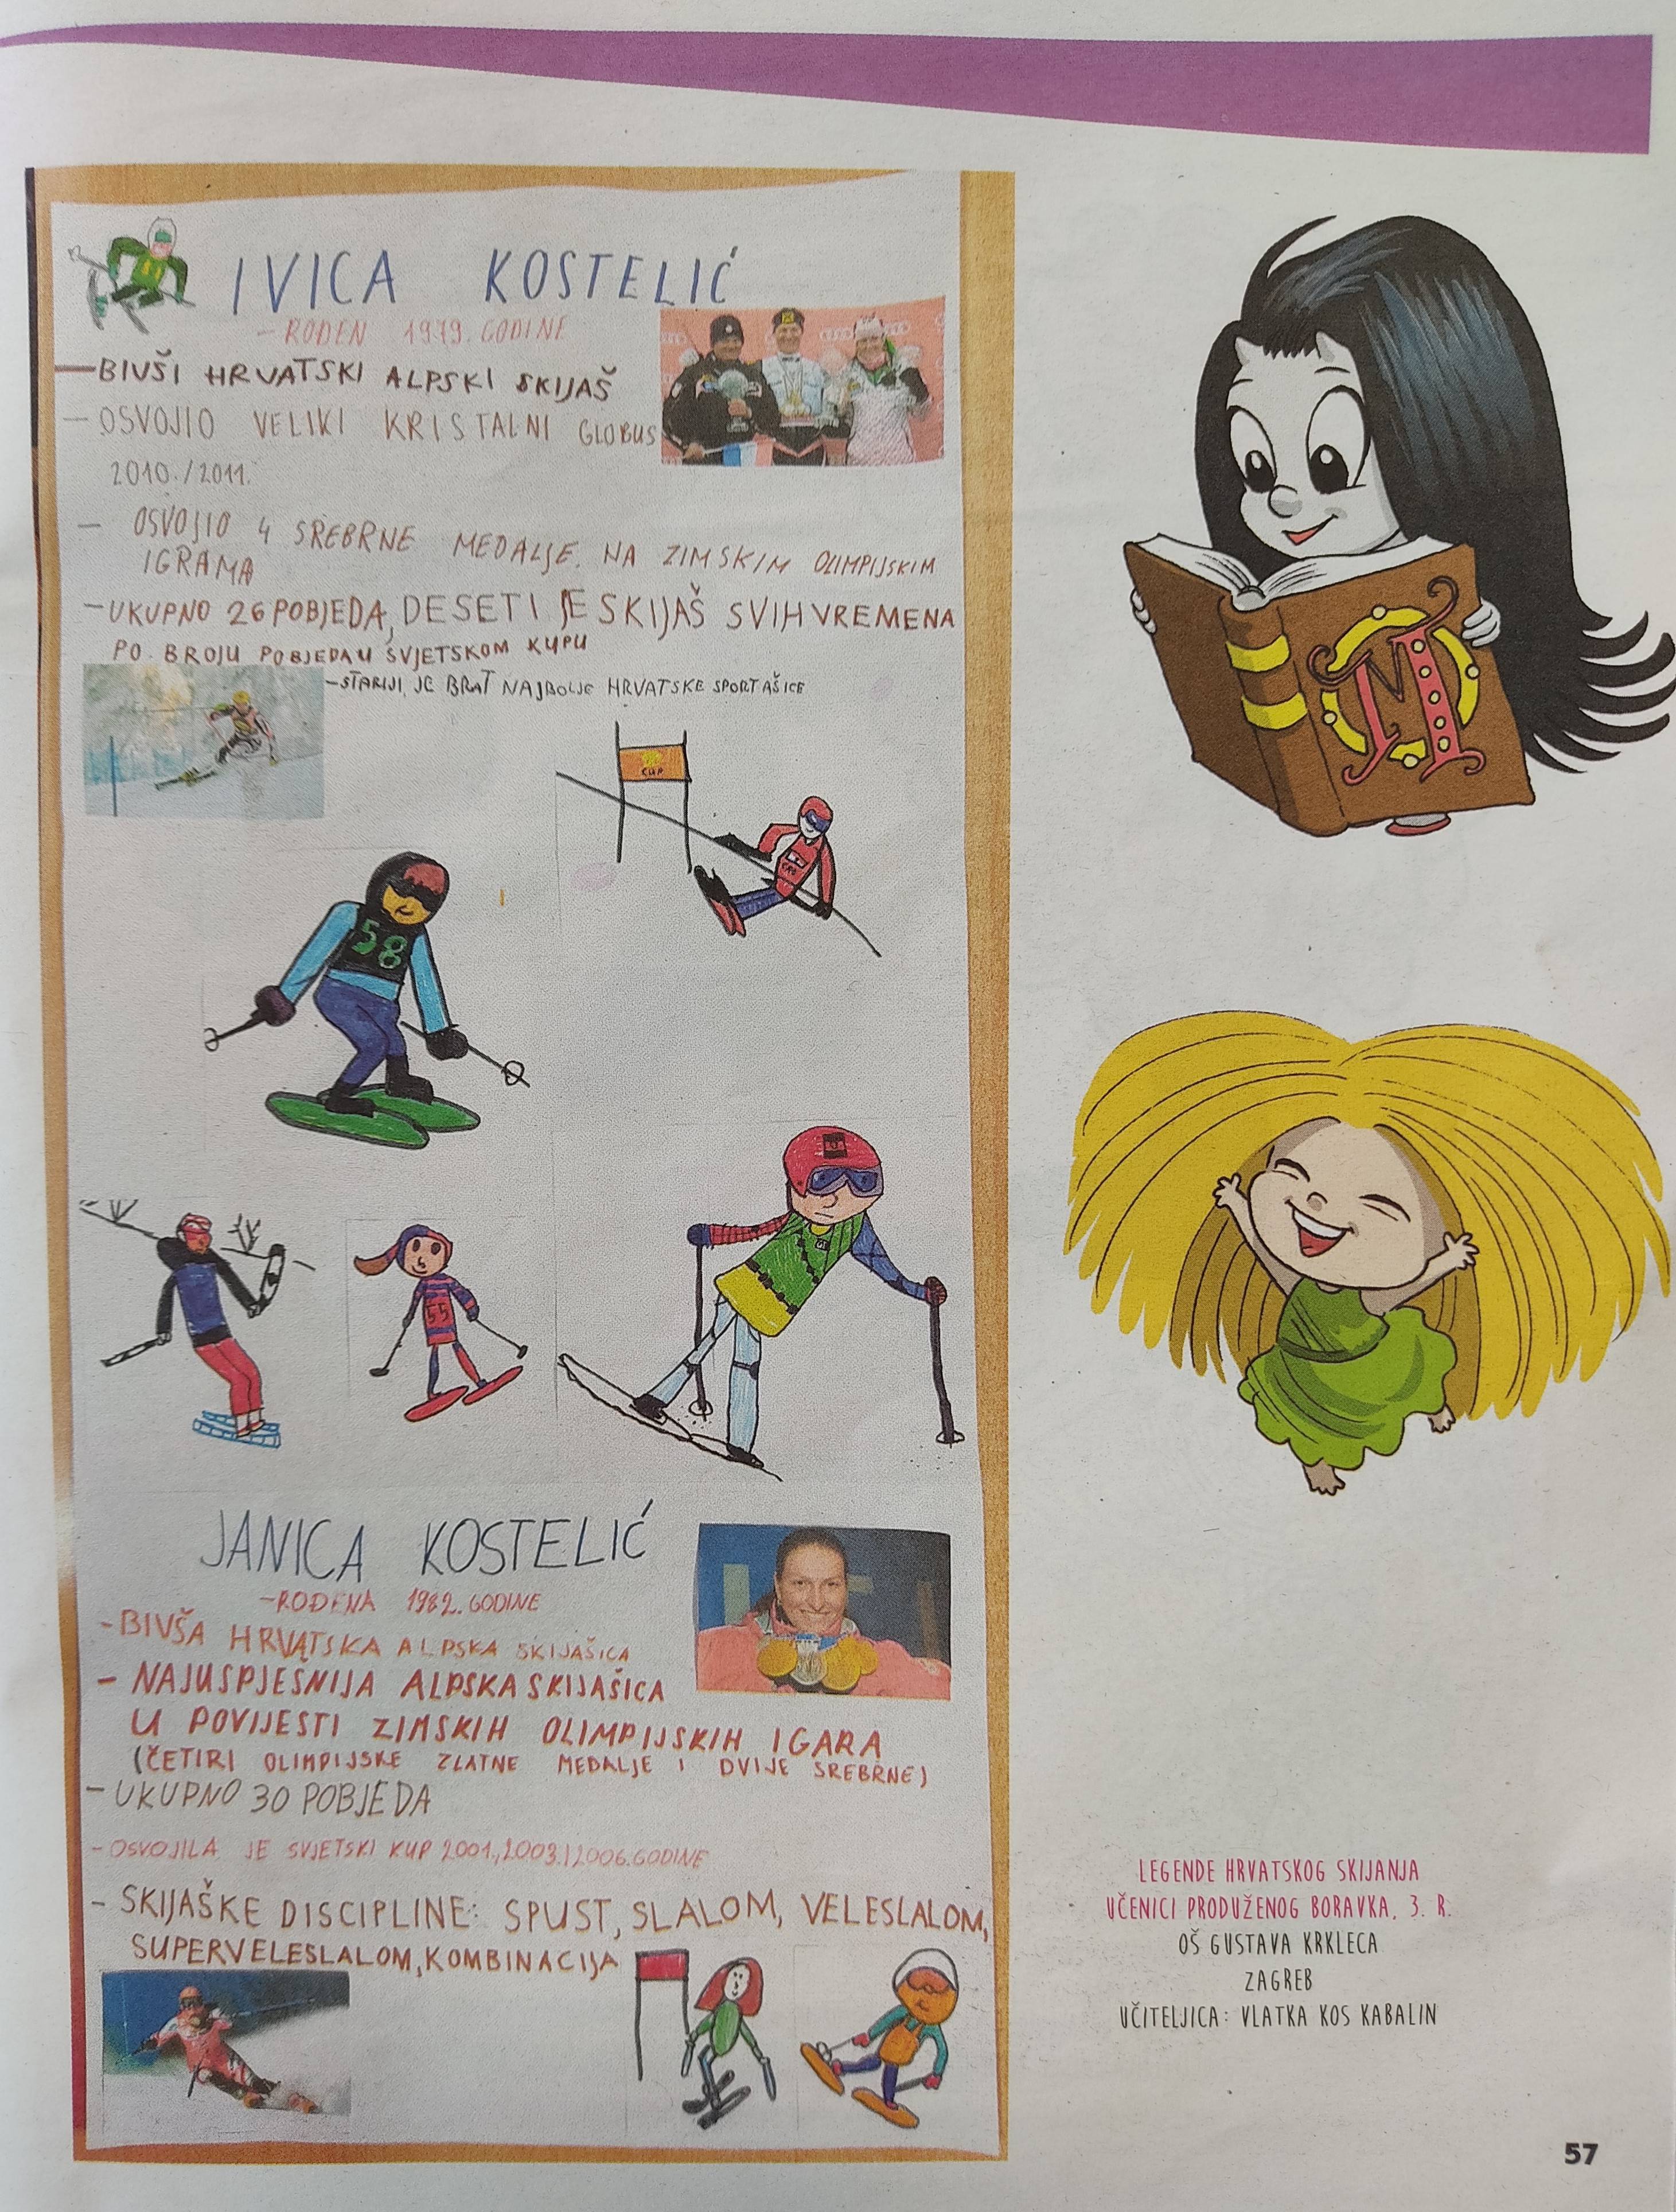 IVICA KOSTELIĆ
- ROĐEN 1979. GODINE
- BIVŠI HRVATSKI ALPSKI SKIJAŠ
- OSVOJIO VELIKI KRISTALNI GLOBUS
2010./2011.
- OSVOJIO 4 SREBRNE MEDALJE NA ZIMSKIM OLIMPIJSKIM
IGRAMA
- UKUPNO 26 POBJEDA, DESETI JE SKIJAŠ SVIH VREMENA
PO BROJU POBJEDA U SVJETSKOM KUPU
- STARIJI JE BRAT NAJBOLJE HRVATSKE SPORTAŠICE
CUP
CRO
58
55
JANICA KOSTELIĆ
- ROĐENA 1982. GODINE
- BIVŠA HRVATSKA ALPSKA SKIJAŠICA
- NAJUSPJEŠNIJA ALPSKA SKIJAŠICA
U POVIJESTI ZIMSKIH OLIMPIJSKIH IGARA
(ČETIRI OLIMPIJSKE ZLATNE MEDALJE I DVIJE SREBRNE)
- UKUPNO 30 POBJEDA
- OSVOJILA JE SVJETSKI KUP 2001., 2003. I 2006. GODINE
- SKIJAŠKE DISCIPLINE: SPUST, SLALOM, VELESLALOM,
SUPERVELESLALOM, KOMBINACIJA
LEGENDE HRVATSKOG SKIJANJA
UČENICI PRODUŽENOG BORAVKA, 3. R.
OŠ GUSTAVA KRKLECA
ZAGREB
UČITELJICA: VLATKA KOS KABALIN
57